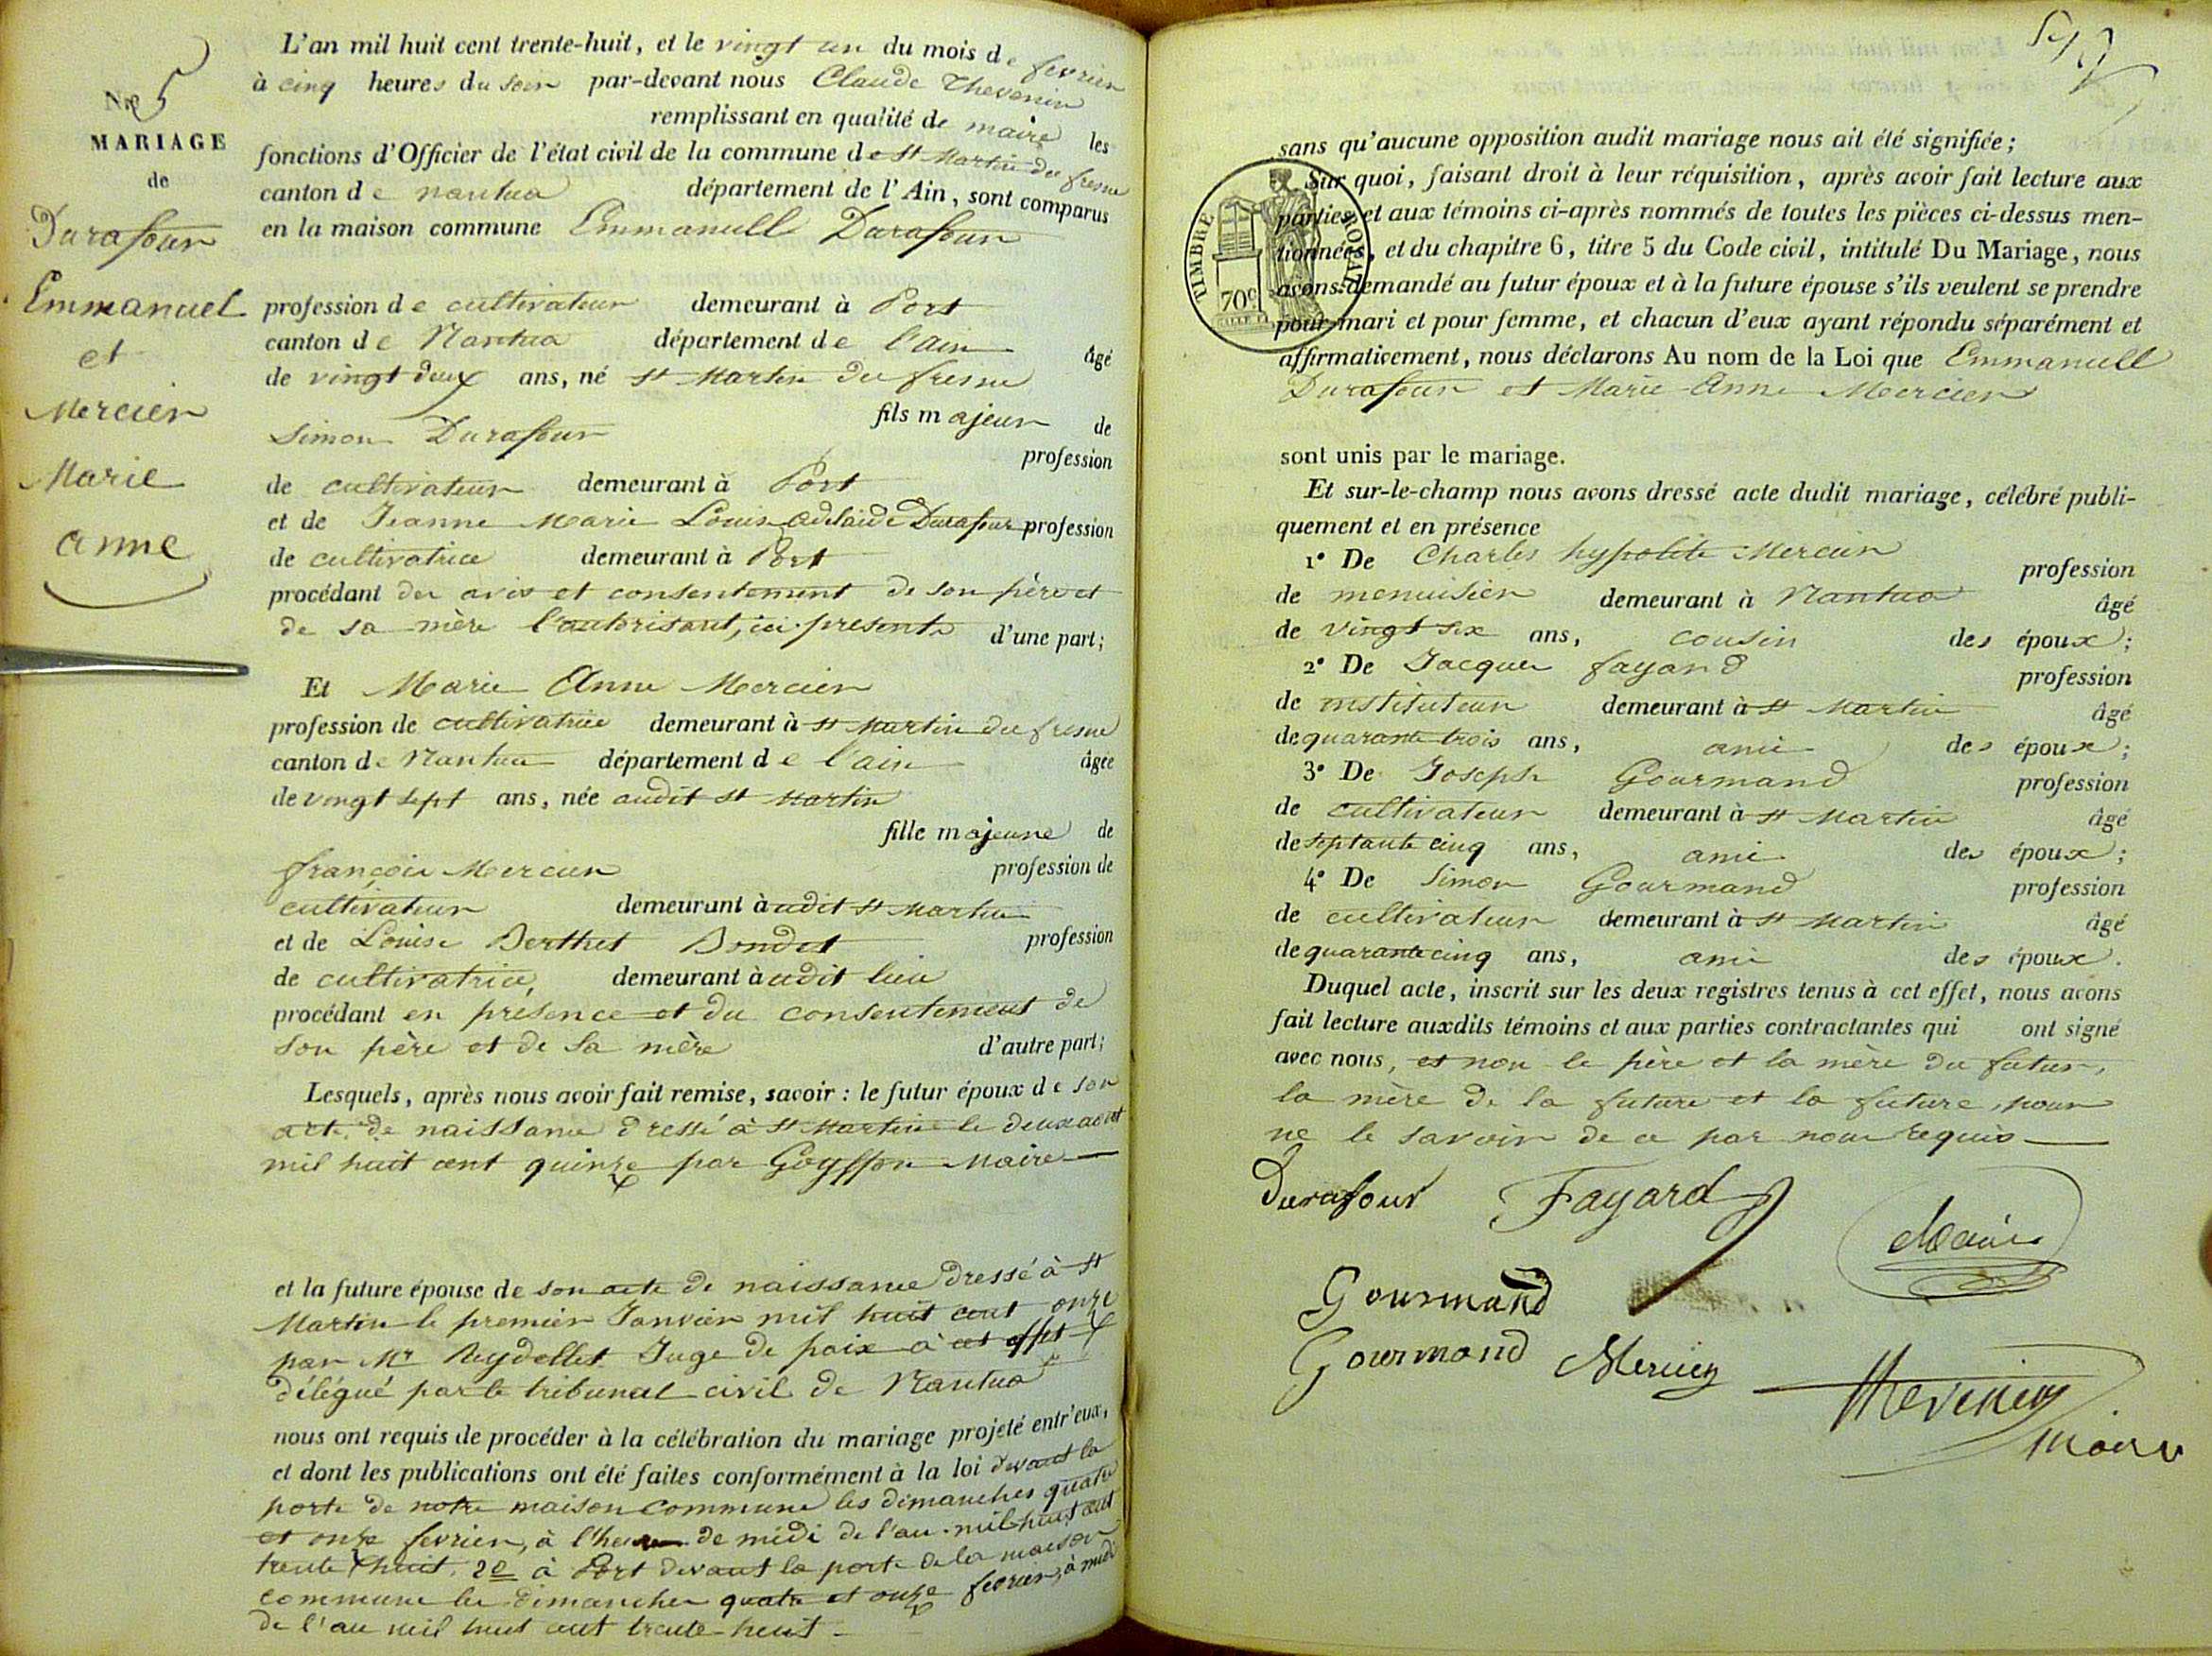 N.º 5
MARIAGE
de
Durafour
Emmanuel
et
Mercier
Marie
Anne
L'an mil huit cent trente-huit, et le vingt un du mois de fevrier
à cinq heures du soir par-devant nous Claude Thevenin
remplissant en qualité de maire les
fonctions d'Officier de l'état civil de la commune de St Martin du fresne
canton de nantua département de l'Ain, sont comparus
en la maison commune Emmanuell Durafour
profession de cultivateur demeurant à Port
canton de Nantua département de l'ain âgé
de vingt deux ans, né St Martin du fresne
fils majeur de
Simon Durafour
profession
de cultivateur demeurant à Port
et de Jeanne Marie Louise Adelaide Durafour profession
de cultivatrice demeurant à Port
procédant du avis et consentement de son père et
de sa mère l'autorisant, ici presents d'une part;
Et Marie Anne Mercier
profession de cultivatrice demeurant à St Martin du fresne
canton de Nantua département de l'ain âgée
de vingt sept ans, née audit St Martin
fille majeure de
françois Mercier profession de
cultivateur demeurant à audit St Martin
et de Louise Berthet Bondet profession
de cultivatrice, demeurant à audit lieu
procédant en présence et du consentement de
son père et de sa mère d'autre part;
Lesquels, après nous avoir fait remise, savoir : le futur époux de son
acte de naissance dressé à St Martin le deux aout
mil huit cent quinze par Goyffon Maire
et la future épouse de son acte de naissance dressé à St
Martin le premier Janvier mil huit cent onze
par Mr Reydellet Juge de paix à cet effet
délégué par le tribunal civil de Nantua
nous ont requis de procéder à la célébration du mariage projeté entr'eux,
et dont les publications ont été faites conformément à la loi devant la
porte de notre maison commune les dimanches quatre
et onze fevrier, à l'heure de midi de l'an mil huit cent
trente huit. 2º à Port devant la porte de la maison
commune les dimanches quatre et onze fevrier, à midi
de l'an mil huit cent trente huit
TIMBRE ROYAL
70c
sans qu'aucune opposition audit mariage nous ait été signifiée;
Sur quoi, faisant droit à leur réquisition, après avoir fait lecture aux
parties et aux témoins ci-après nommés de toutes les pièces ci-dessus men-
tionnées, et du chapitre 6, titre 5 du Code civil, intitulé Du Mariage, nous
avons demandé au futur époux et à la future épouse s'ils veulent se prendre
pour mari et pour femme, et chacun d'eux ayant répondu séparément et
affirmativement, nous déclarons Au nom de la Loi que Emmanuell
Durafour et Marie Anne Mercier
sont unis par le mariage.
Et sur-le-champ nous avons dressé acte dudit mariage, célébré publi-
quement et en présence
1º De Charles hypolite Mercier profession
de menuisier demeurant à Nantua âgé
de vingt six ans, cousin des époux;
2º De Jacques fayard profession
de instituteur demeurant à St Martin âgé
de quarante trois ans, ami des époux;
3º De Joseph Gourmand profession
de cultivateur demeurant à St Martin âgé
de septante cinq ans, ami des époux;
4º De Simon Gourmand profession
de cultivateur demeurant à St Martin âgé
de quarante cinq ans, ami des époux.
Duquel acte, inscrit sur les deux registres tenus à cet effet, nous avons
fait lecture auxdits témoins et aux parties contractantes qui ont signé
avec nous, et non le père et la mère du futur,
la mère de la future et la future, pour
ne le savoir de ce par nous requis
Durafour Fayard
Gourmand
Gourmand Mercier Thevenin
maire